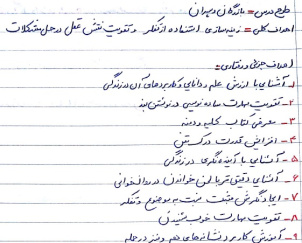 طرح درس = بازرگان و پسران
اهداف کلی = زمینه‌سازی استفاده از تفکر و تقویت نقش عقل در حل مشکلات
اهداف جزئی و رفتاری :
۱- آشنایی با ارزش علم و دانایی و کاربرد های آن در زندگی
۲- تقویت مهارت ساده نویسی در نوشتن بند
۳- معرفی کتاب کلیله و دمنه
۴- افزایش قدرت درک متن
۵- آشنایی با آینده نگری در زندگی
۶- آشنایی دقیق تر با لحن خواندن در روان خوانی
۷- ایجاد نگرش مثبت نسبت به موضوع و تفکر
۸- تقویت مهارت خوب شنیدن
۹- آموزش کاربرد نشانه های در جمله